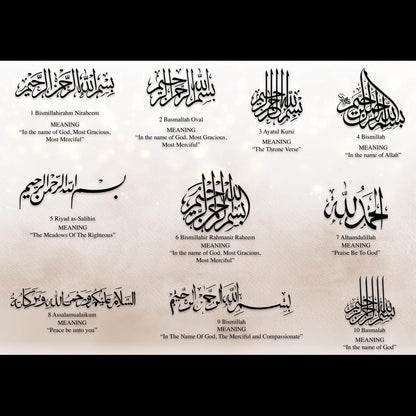 بسم الله الرحمن الرحيم
بسم الله الرحمن الرحيم
بسم الله الرحمن الرحيم
بسم الله الرحمن الرحيم
1 Bismillahirahm Niraheem
MEANING
“In the name of God, Most Gracious,
Most Merciful”
2 Basmallah Oval
MEANING
“In the name of God, Most Gracious,
Most Merciful”
3 Ayatul Kursi
MEANING
“The Throne Verse”
4 Bismillah
MEANING
“In the name of Allah”
بسم الله الرحمن الرحيم
بسم الله الرحمن الرحيم
الحمد لله
5 Riyad as-Salihin
MEANING
“The Meadows Of The Righteous”
6 Bismillahir Rahmanir Raheem
MEANING
“In the name of God, Most Gracious,
Most Merciful”
7 Alhamdulillah
MEANING
“Praise Be To God”
السلام عليكم ورحمة الله وبركاته
بسم الله الرحمن الرحيم
بسم الله الرحمن الرحيم
8 Assalamualaikum
MEANING
“Peace be unto you”
9 Bismillah
MEANING
“In The Name Of God, The Merciful and Compassionate”
10 Basmalah
MEANING
“In the name of God”